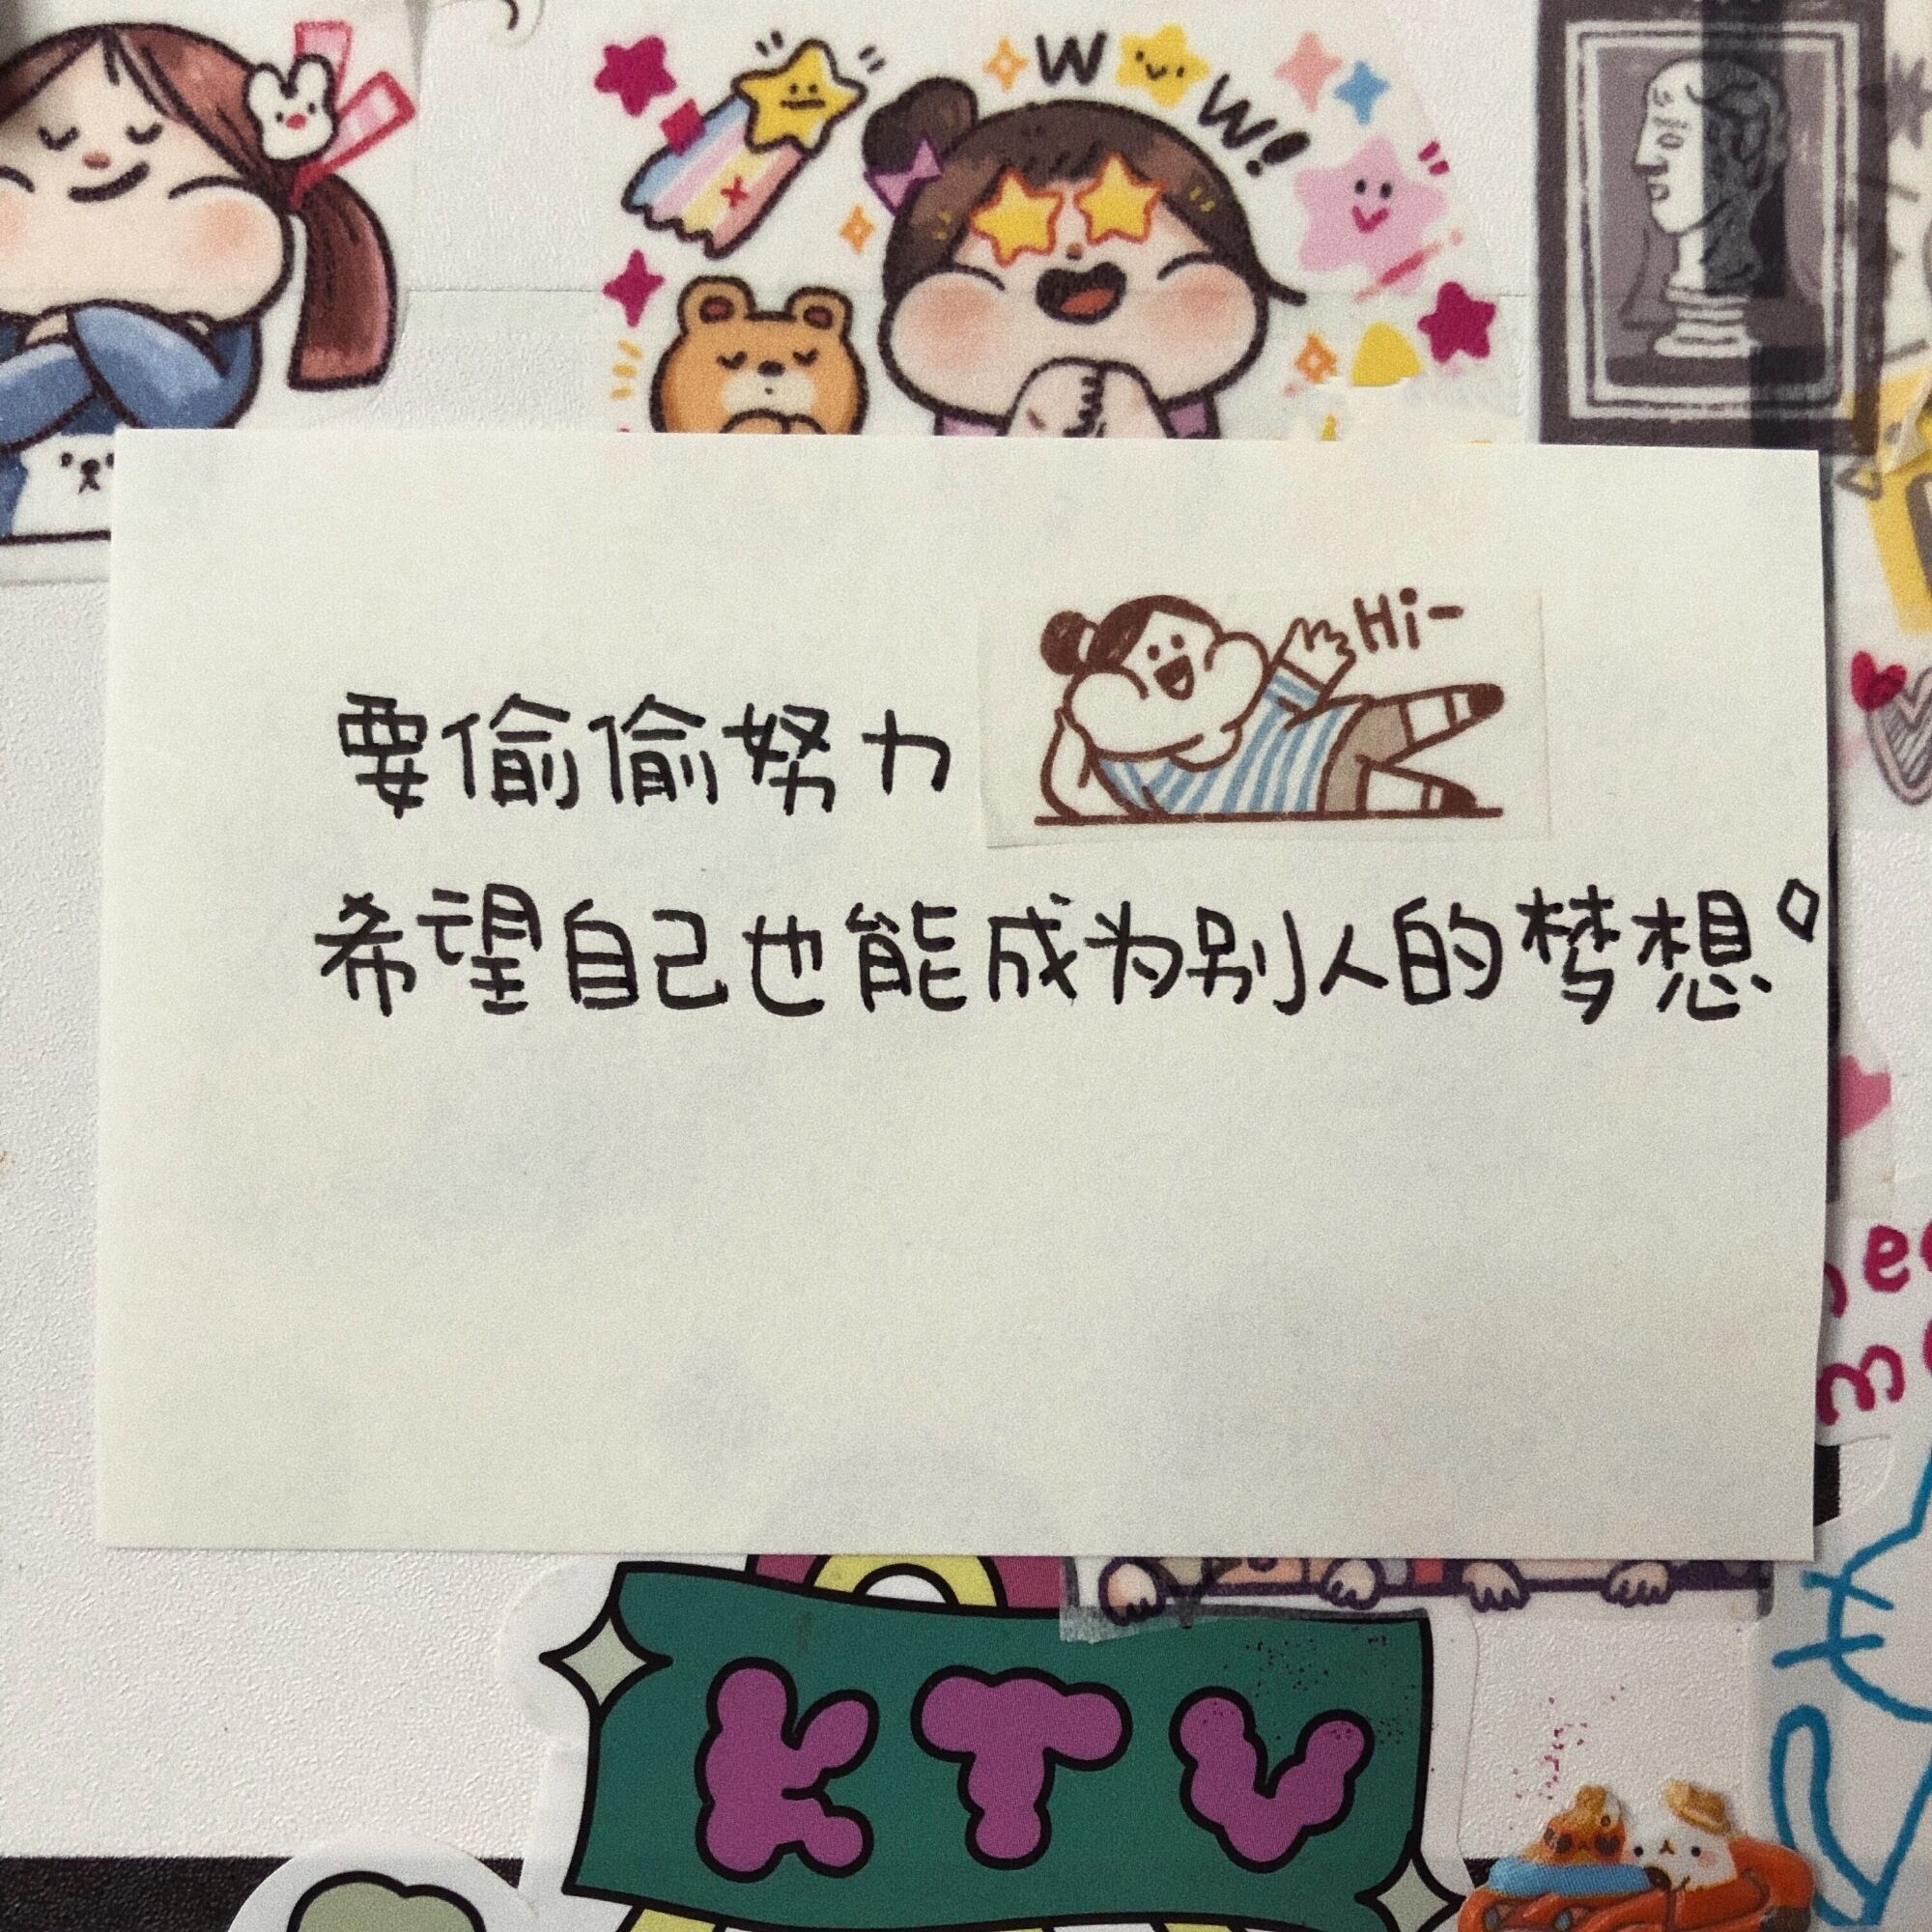 WOW!
Hi-
要偷偷努力
希望自己也能成为别人的梦想。
KTV